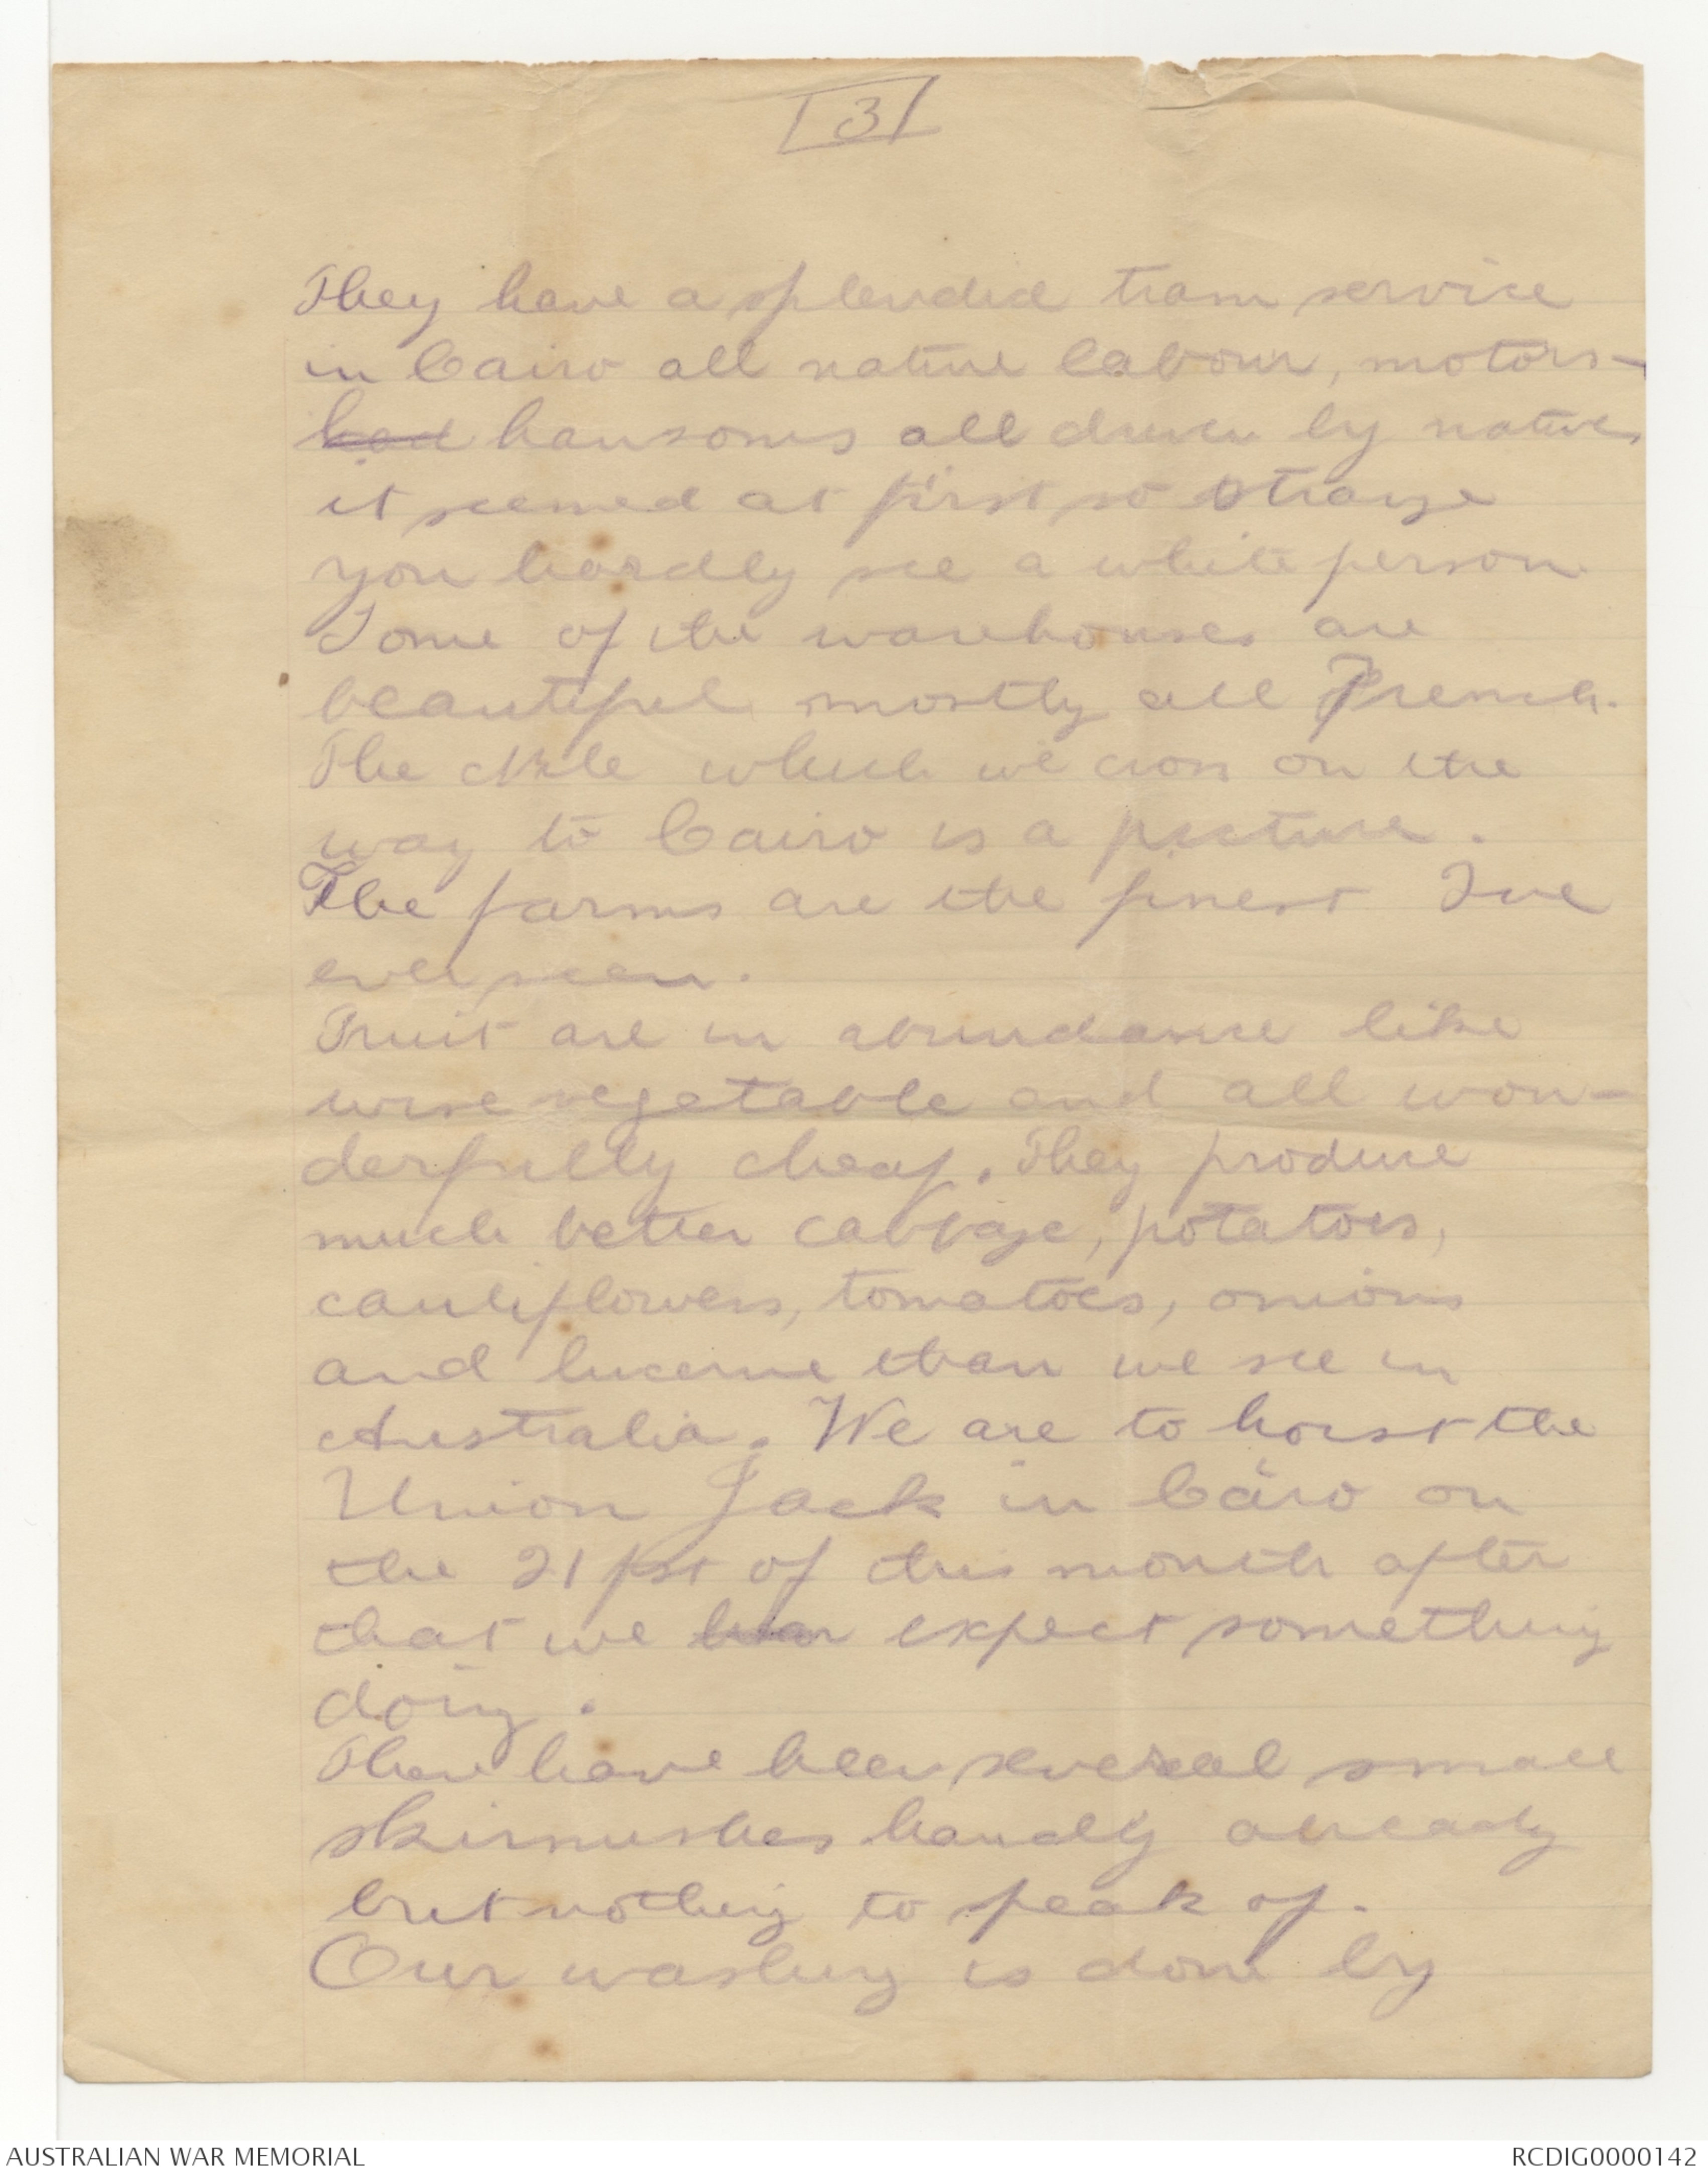 3
They have a splendid tram service
in Cairo all native labour, motors -
had hansoms all driven by natives
it seemed at first so strange
you hardly see a white person
Some of the warehouses are
beautiful mostly all French.
The Nile which we cross on the
way to Cairo is a picture.
The farms are the finest Ive
ever seen.
Fruit are in abundance like
wise vegetable and all won-
derfully cheap. They produce
much better cabbage, potatoes,
cauliflowers, tomatoes, onions
and lucerne than we see in
Australia. We are to hoist the
Union Jack in Cairo on
the 21 pst of this month after
that we expect something
doing.
There have been several small
skirmishes handy already
but nothing to speak of.
Our washing is done by
AUSTRALIAN WAR MEMORIAL
RCDIG0000142